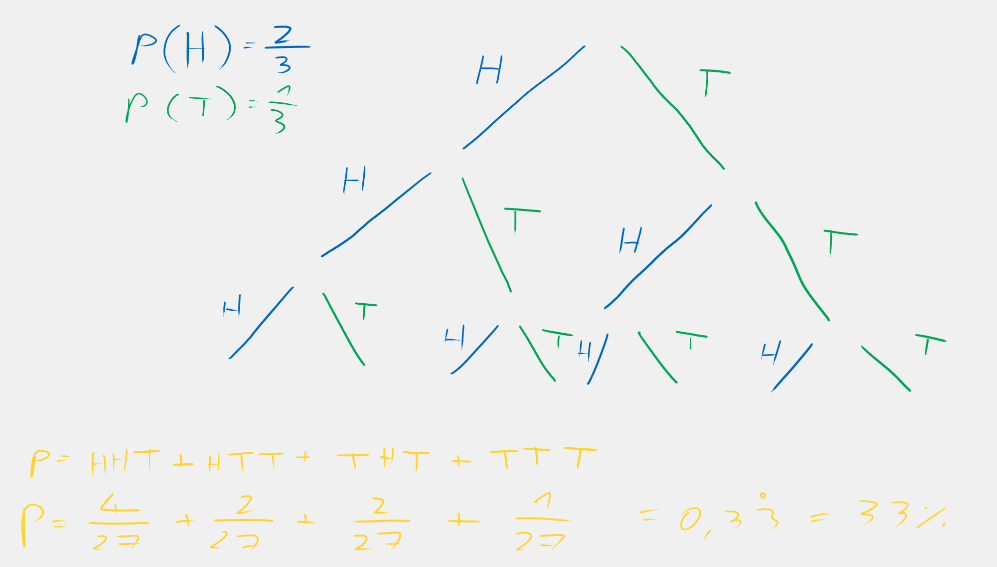 P(H) = 2/3
P(T) = 1/3
H T
H T H T
H T H T H T H T
P = HHT + HTT + THT + TTT
P = 4/27 + 2/27 + 2/27 + 1/27 = 0,33̇ = 33%